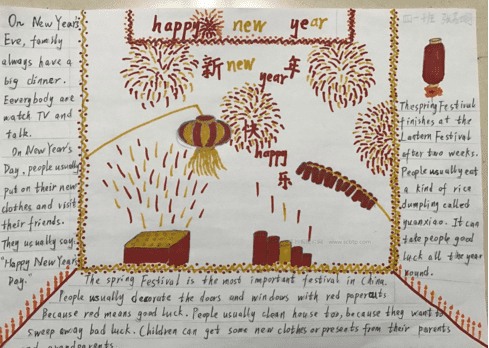 happy new year
新 new 年
year
快
happy
乐
On New Year's
Eve, family
always have a
big dinner.
Eeverybody are
watch TV and
talk.
On New Year's
Day, people usually
put on their new
clothes and visit
their friends.
They usually say:
"Happy New Year
Day."
The spring Festival
finishes at the
Lantern Festival
after two weeks.
People usually eat
a kind of rice
dumpling called
yuanxiao. It can
take people good
luck all the year
round.
The spring Festival is the most important festival in China.
People usually decorate the doors and windows with red papercuts.
Because red means good luck. People usually clean house too, because they want to
sweep away bad luck. Children can get some new clothes or presents from their parents
grandparents